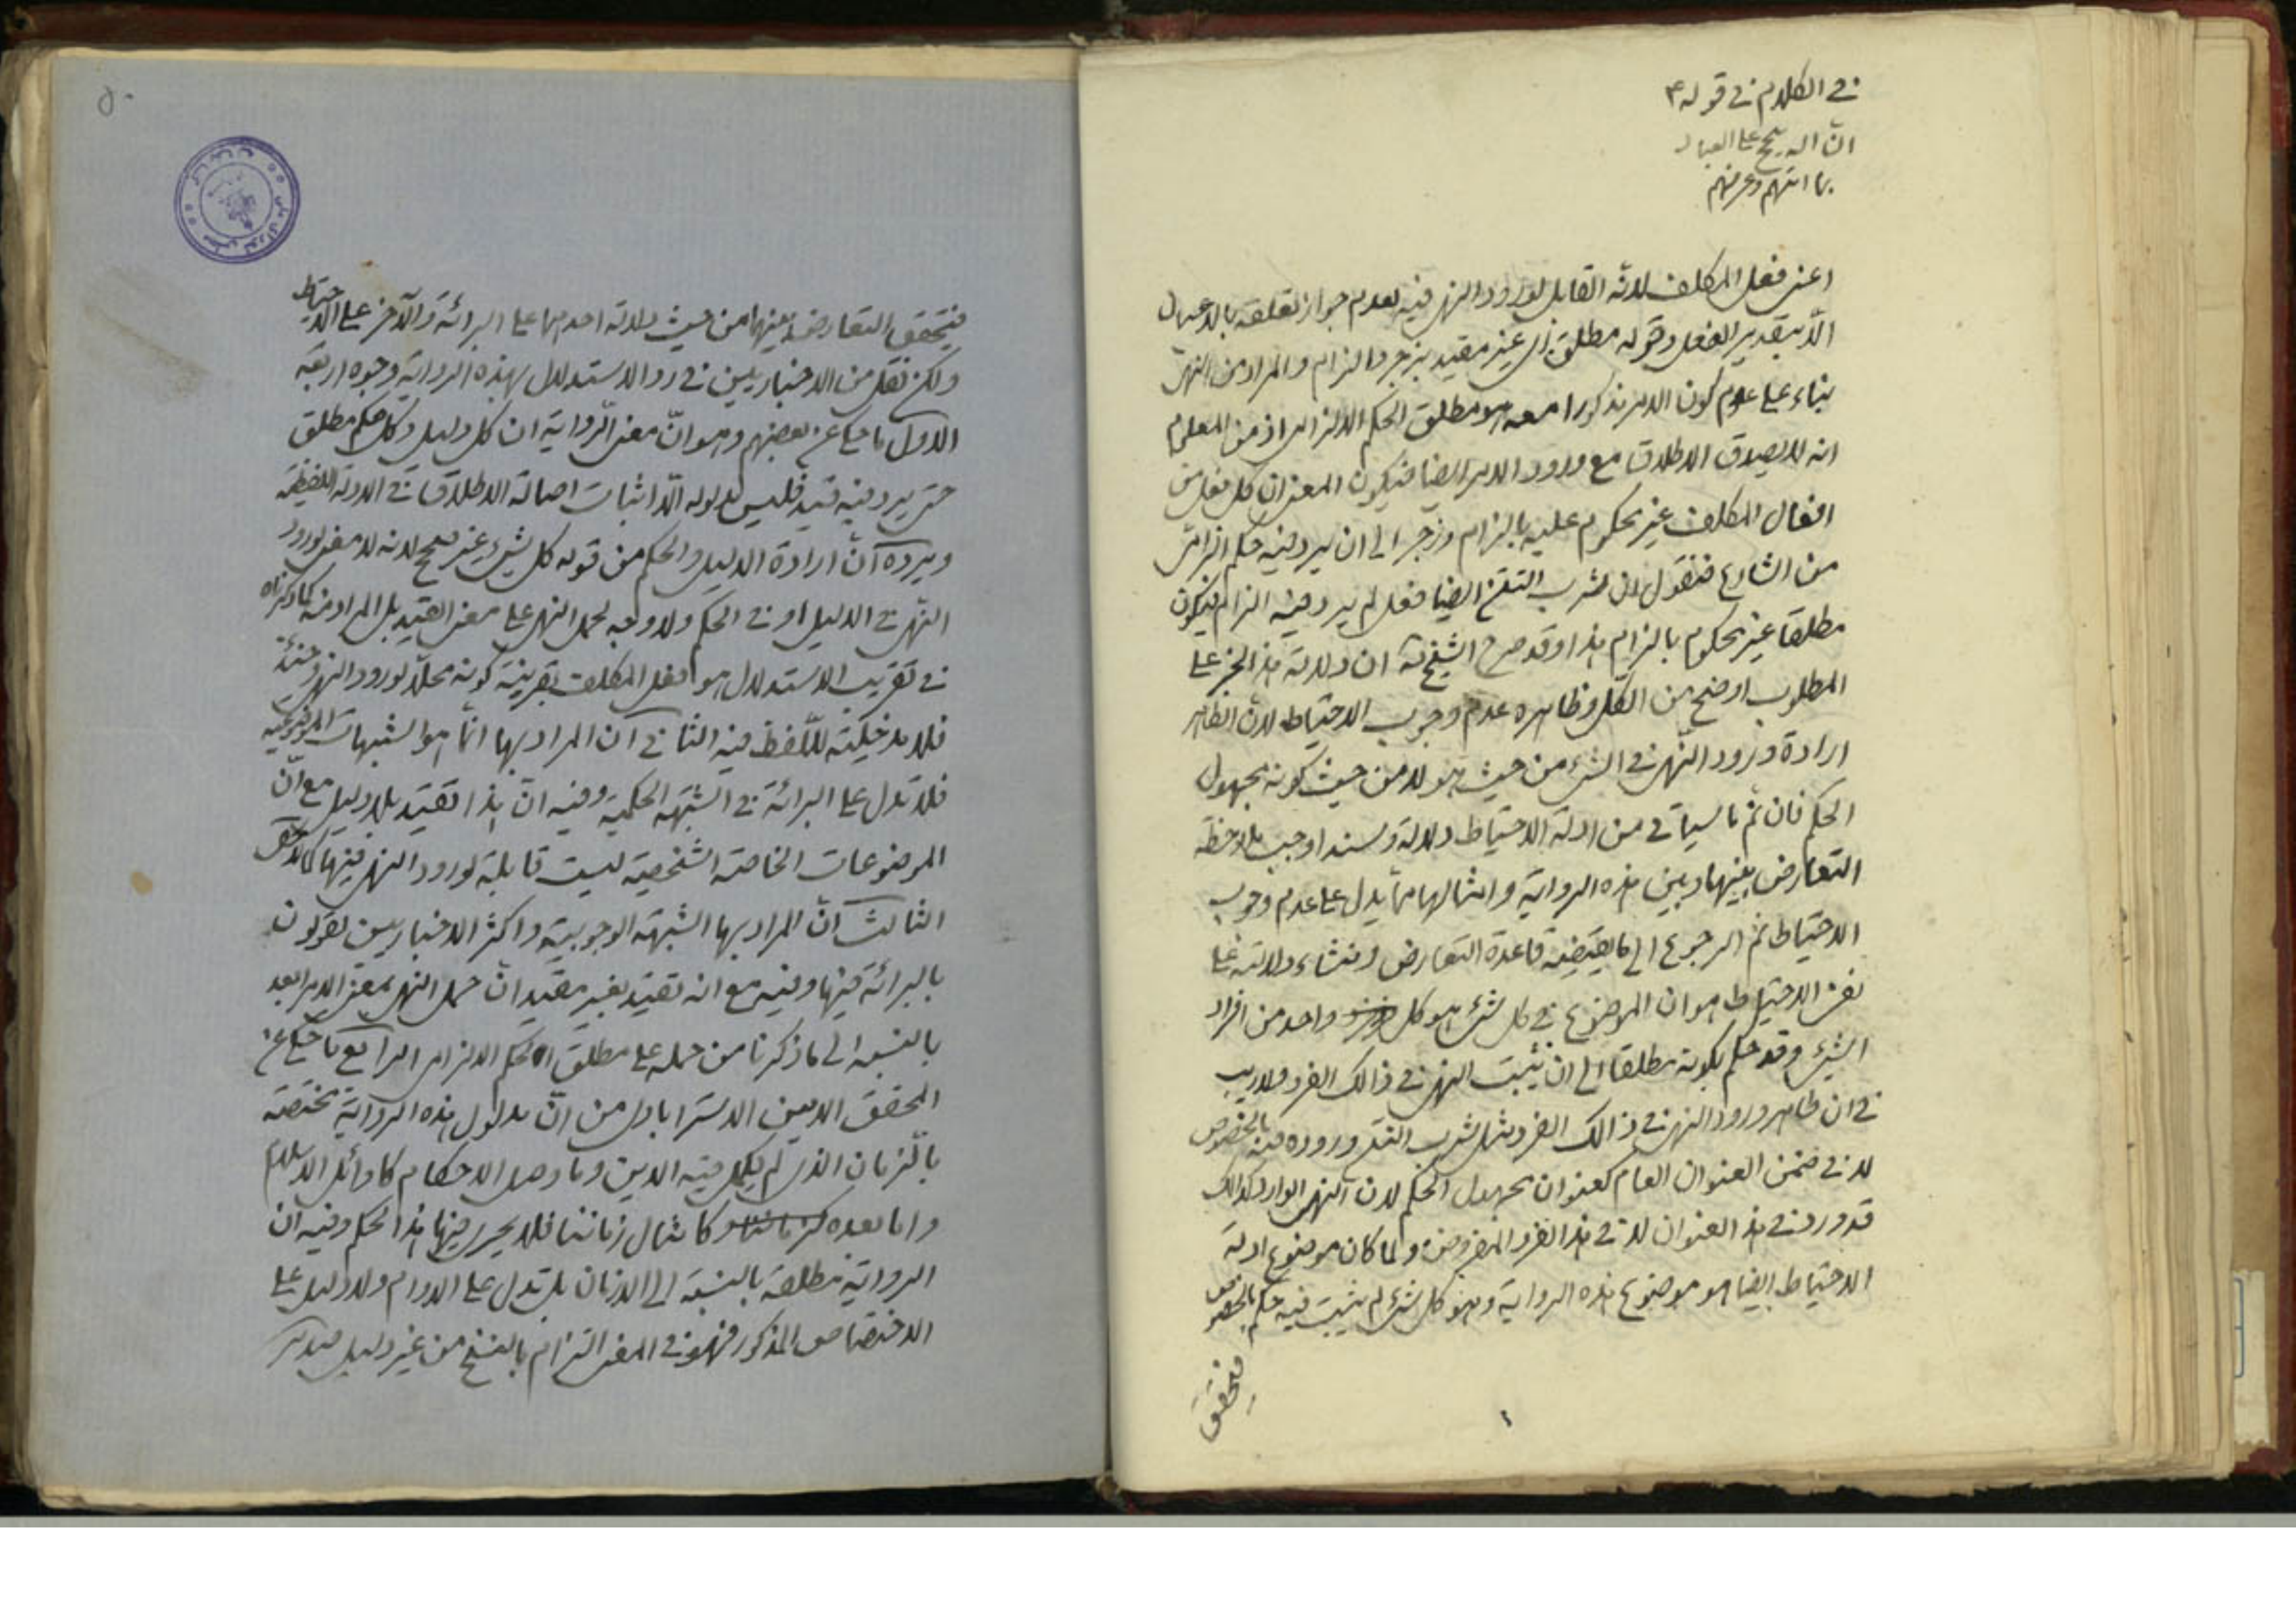 في الكلام في قوله ع
ان الله يحتج على العباد
بما اتيهم وعرفهم
اعني فعل المكلف لانه القابل لورود النهي فيه لعدم جواز تعلقه بالاعيان
الّا بتقدير الفعل وقوله مطلق اي غير مقيد بزجر والزام والمراد من النهي
بناء على عدم كون الامر مذكورا معه هو مطلق الحكم الالزامي اذ من المعلوم
انه لا يصدق الاطلاق مع ورود الامر ايضا فيكون المعنى ان كل فعل من
افعال المكلف غير محكوم عليه بالزام وزجر الى ان يرد فيه حكم الزامي
من الشارع فنقول ان شرب التتن ايضا فعل لم يرد فيه الزام فيكون
مطلقا غير محكوم بالزام هذا وقد صرح الشيخ ره ان دلالة هذا الخبر على
المطلوب اوضح من الكل وظاهره عدم وجوب الاحتياط لان الظاهر
ارادة ورود النّهي في الشيء من حيث هو لا من حيث كونه مجهول
الحكم فان تم ما سياتي من ادلة الاحتياط دلالة وسندا وجب ملاحظة
التعارض بينها وبين هذه الرواية وامثالها ممّا يدل على عدم وجوب
الاحتياط ثم الرجوع الى ما يقتضيه قاعدة التعارض ومنشاء دلالته على
نفي الاحتياط هو ان الموضوع في كل شيء هو كل واحد من افراد
الشيء وقد حكم بكونه مطلقا الى ان يثبت النهي في ذالك الفرد ولا ريب
في ان ظاهر ورود النهي في ذالك الفرد مثل شرب التتن وروده فيه بالخصوص
لا في ضمن العنوان العام كعنوان مجهول الحكم لان النهي الوارد كذالك
قد ورد في هذا العنوان لا في هذا الفرد المفروض ولما كان موضوع ادلة
الاحتياط ايضا هو موضوع هذه الرواية وهو كل شيء لم يثبت فيه حكم بالخصوص
فيتحقق
فيتحقق التعارض بينهما من حيث دلالة احدهما على البرائة والآخر على الاحتياط
ولكن نقل من الاخباريين في رد الاستدلال بهذه الرواية وجوه اربعة
الاول ما حكي عن بعضهم وهو انّ معنى الرّواية ان كل دليل وكل حكم مطلق
حتى يرد فيه قيد فليس مدلوله الّا اثبات اصالة الاطلاق في الادلة اللفظية
ويرده انّ ارادة الدليل والحكم من قوله كل شيء غير صحيح لانه لا معنى لورود
النّهي في الدليل او في الحكم ولا وجه لحمل النهي على معنى القيد بل المراد منه كما ذكرناه
في تقريب الاستدلال هو فعل المكلف بقرينة كونه محلّا لورود النهي وحينئذ
فلا مدخلية للّفظ فيه الثاني ان المراد بها انّما هو الشبهات الموضوعية
فلا تدل على البرائة في الشبهة الحكمية وفيه انّ هذا تقييد بلا دليل مع انّ
الموضوعات الخاصة الشخصية ليست قابلة لورود النهي فيها
الثالث انّ المراد بها الشبهة الوجوبية واكثر الاخباريين يقولون
بالبرائة فيها وفيه مع انه تقييد بغير مقيد انّ حمل النهي بمعنى الامر ابعد
بالنسبة الى ما ذكرنا من حمله على مطلق الحكم الالزامي الرابع ما حكي عن
المحقق الامين الاسترابادي من انّ مدلول هذه الرواية مختصة
بالزمان الذي لم يكمل فيه الدين وما وصل الاحكام كاوائل الاسلام
واما بعده كامثال زماننا فلا يجري فيها هذا الحكم وفيه ان
الرواية مطلقة بالنسبة الى الازمان بل تدل على الدوام ولا دليل على
الاختصاص المذكور فهو في المعنى التزام بالنسخ من غير دليل